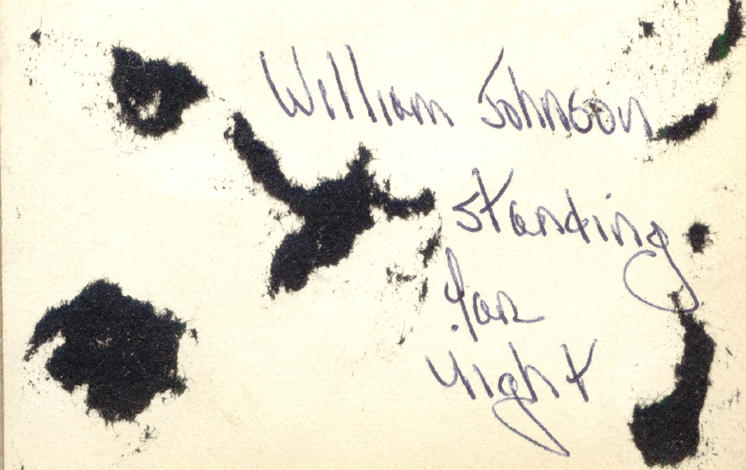 William Johnson
standing
far
right